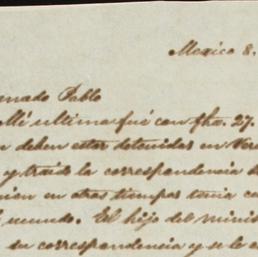 Mexico 8.
mado Pablo
Mi ultima fué con fha. 27.
deben estar detenidas en Ver
y traido la correspondencia
en otros tiempos tenia con
mundo. El hijo del minis
su correspondencia y se le